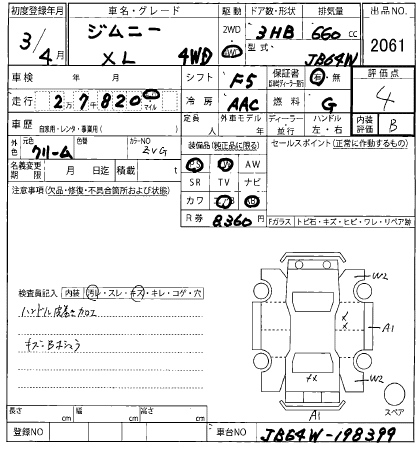 初度登録年月 車名・グレード 駆動 ドア数・形状 排気量 出品NO.
3/4月 ジムニー XL 4WD 2WD 4WD 3HB 660cc 2061
型式 JB64W
車検 年 月 シフト F5 保証書 有・無 評価点
走行 2万7千820 マイル 冷房 AAC 燃料 G 4
車歴 自家用・レンタ・事業用( ) 定員 人 外車モデル 年 ディーラー 並行 ハンドル 左・右 内装評価 B
外色 元色 クリーム 色替 カラーNO ZVG 装備品(純正品に限る) セールスポイント(正常に作動するもの)
名義変更期限 月 日迄 積載 t PS PW AW
注意事項(欠品・修復・不具合箇所および状態) SR TV ナビ
カワ エアB ABS
R券 8,360円 Fガラス トビ石・キズ・ヒビ・ワレ・リペア跡
W2
検査員記入 内装 汚れ・スレ・キズ・キレ・コゲ・穴
ハンドル皮巻き加工
A1
キズ
W2
スペア
A1
長さ cm 幅 cm 高さ cm
登録NO 車台NO JB64W-198399